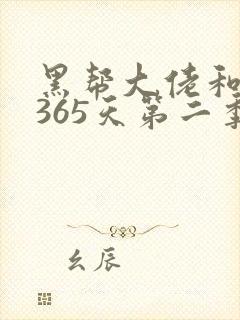 黑帮大佬和
365天第二季
幺辰